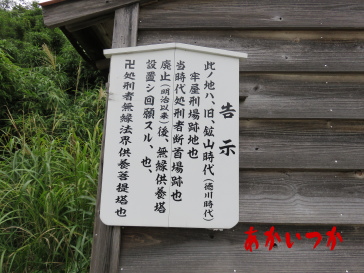 告示
此ノ地ハ、旧、鉱山時代(徳川時代)
牢屋刑場跡地也
当時代処刑者断首場跡也
廃止(明治以来)後、無縁供養塔
設置シ回願スル、也、
卍処刑者無縁法界供養菩提塔也
あかいつか